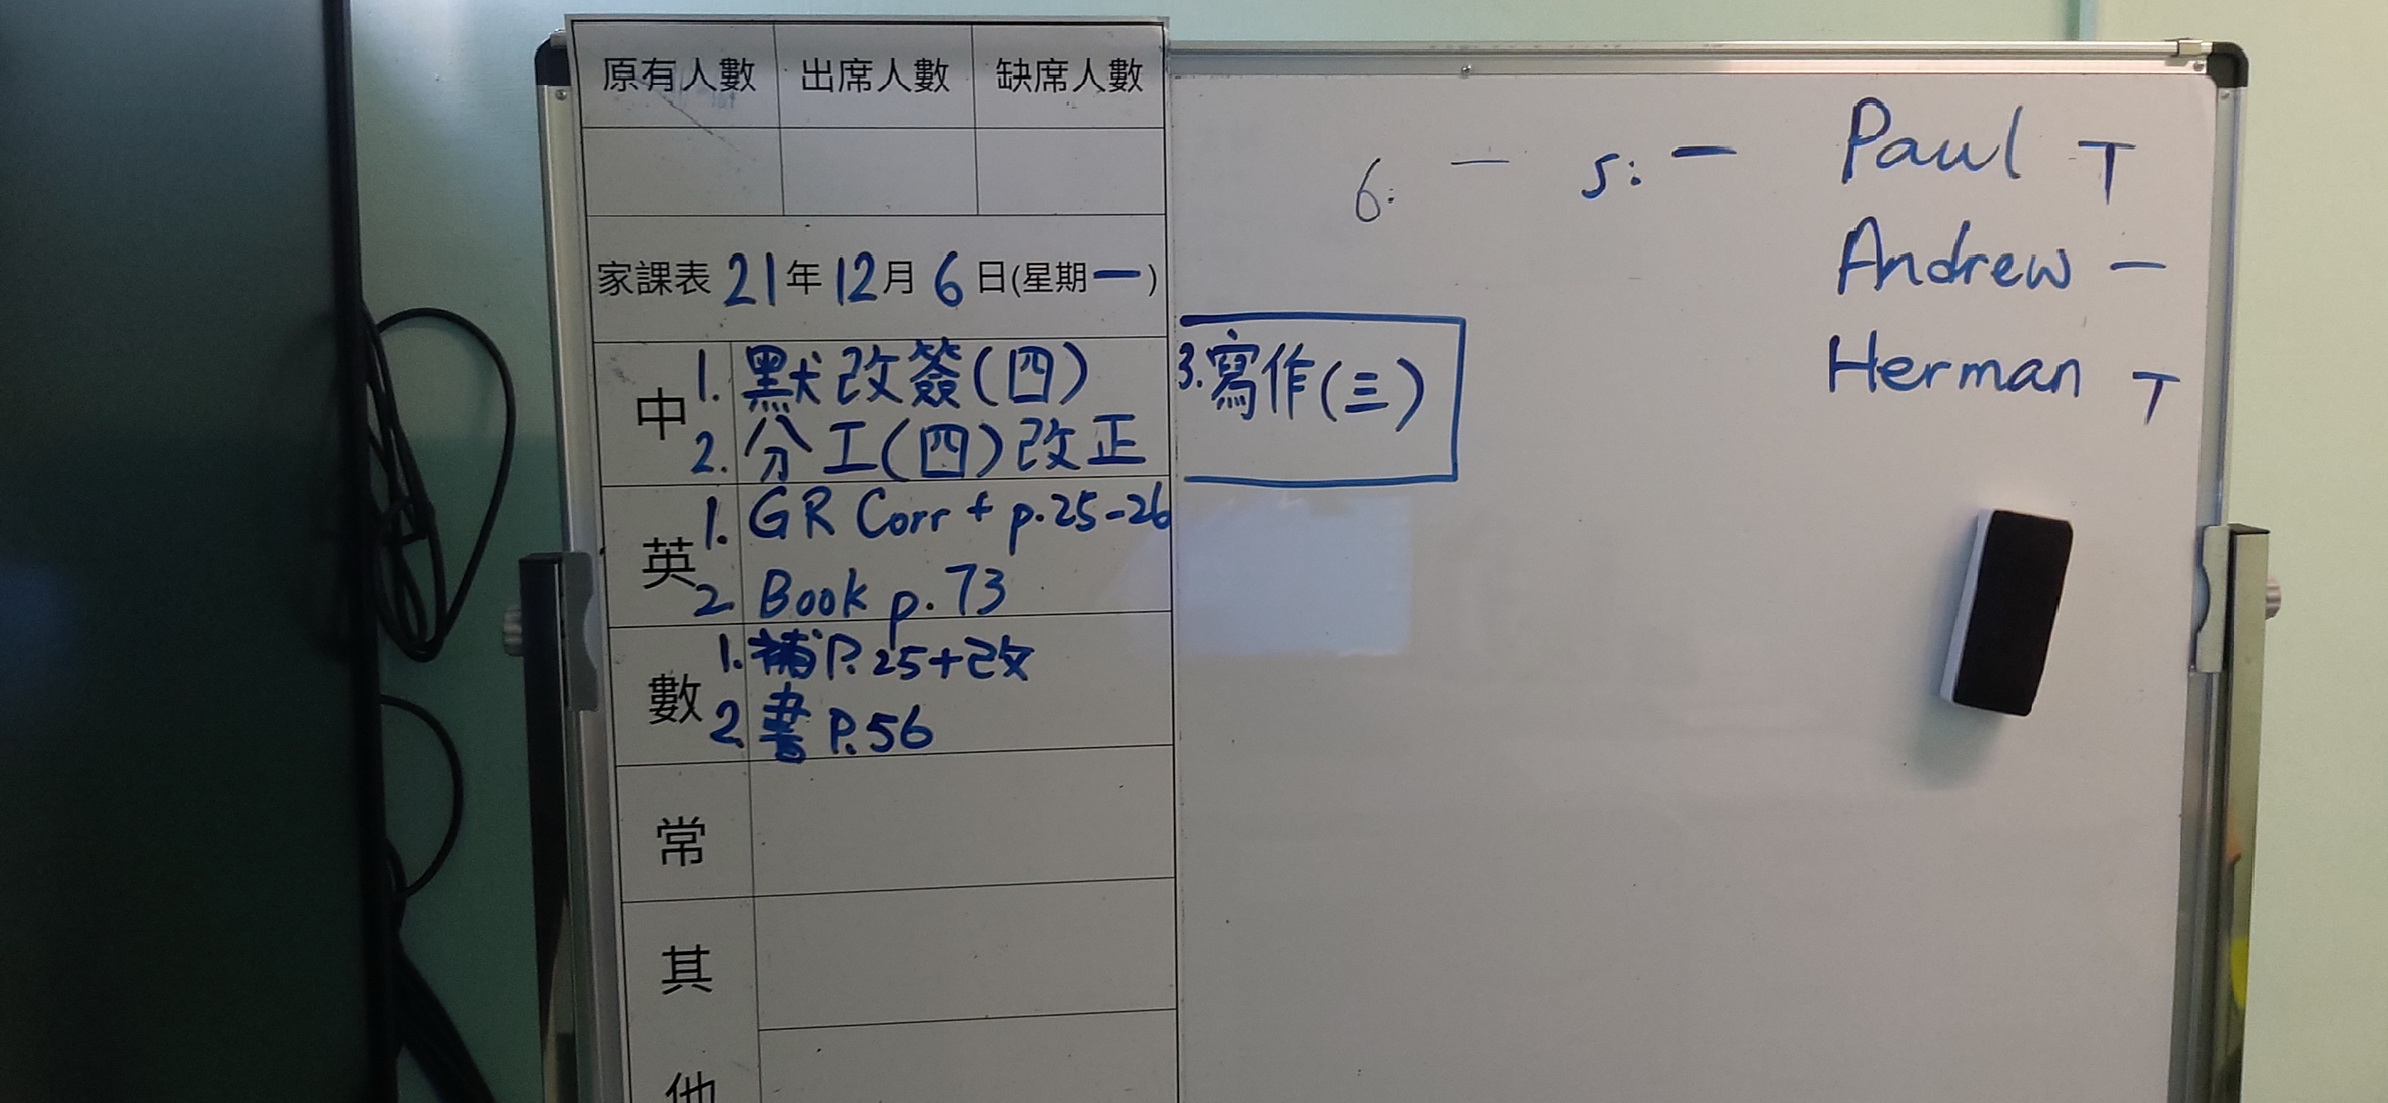 原有人數 出席人數 缺席人數
家課表 21年12月6日(星期一)
中 1. 默改簽(四)
2. 分工(四)改正
3. 寫作(三)
英 1. GR Corr + p.25-26
2 Book p.73
數 1. 補P.25+改
2. 書 P.56
常
其
他
6: — 5: — Paul T
Andrew —
Herman T